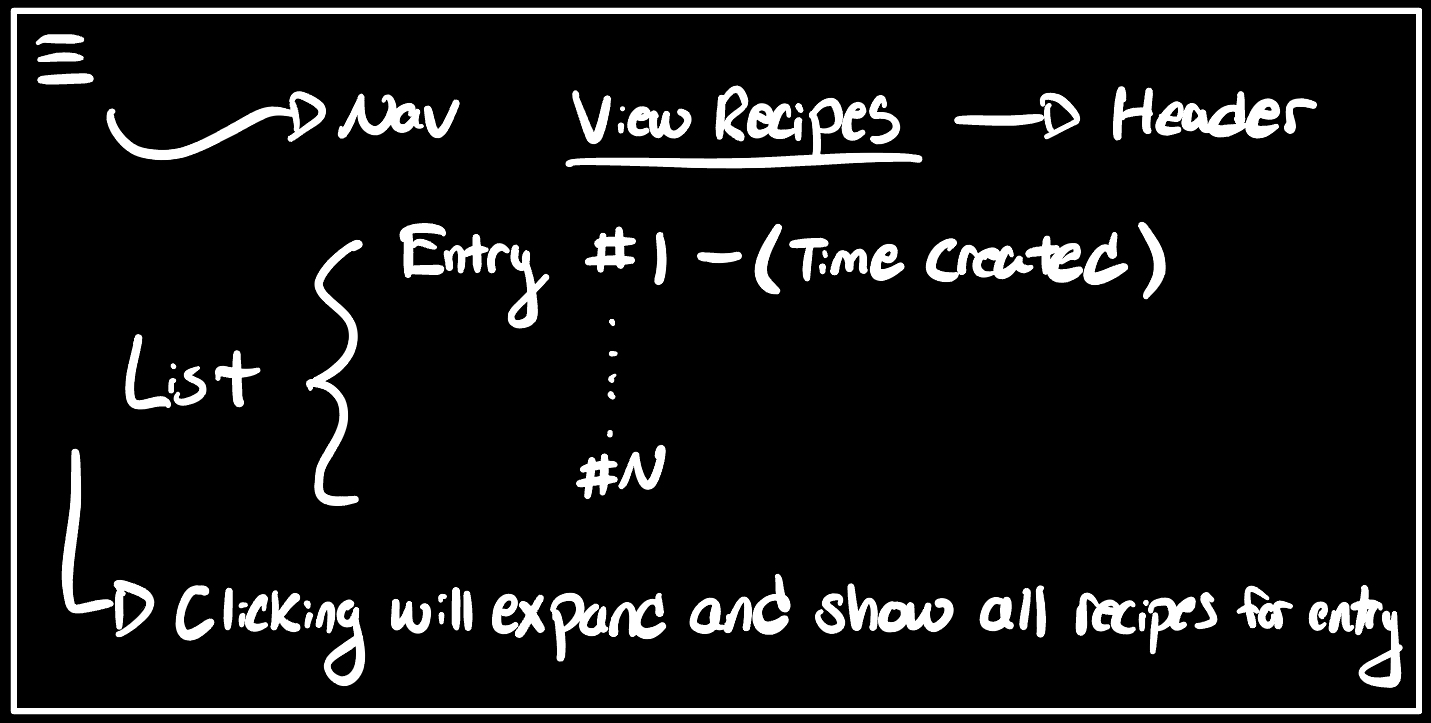 Nav View Recipes Header
Entry #1 - (Time Created)
List
#N
Clicking will expand and show all recipes for entry